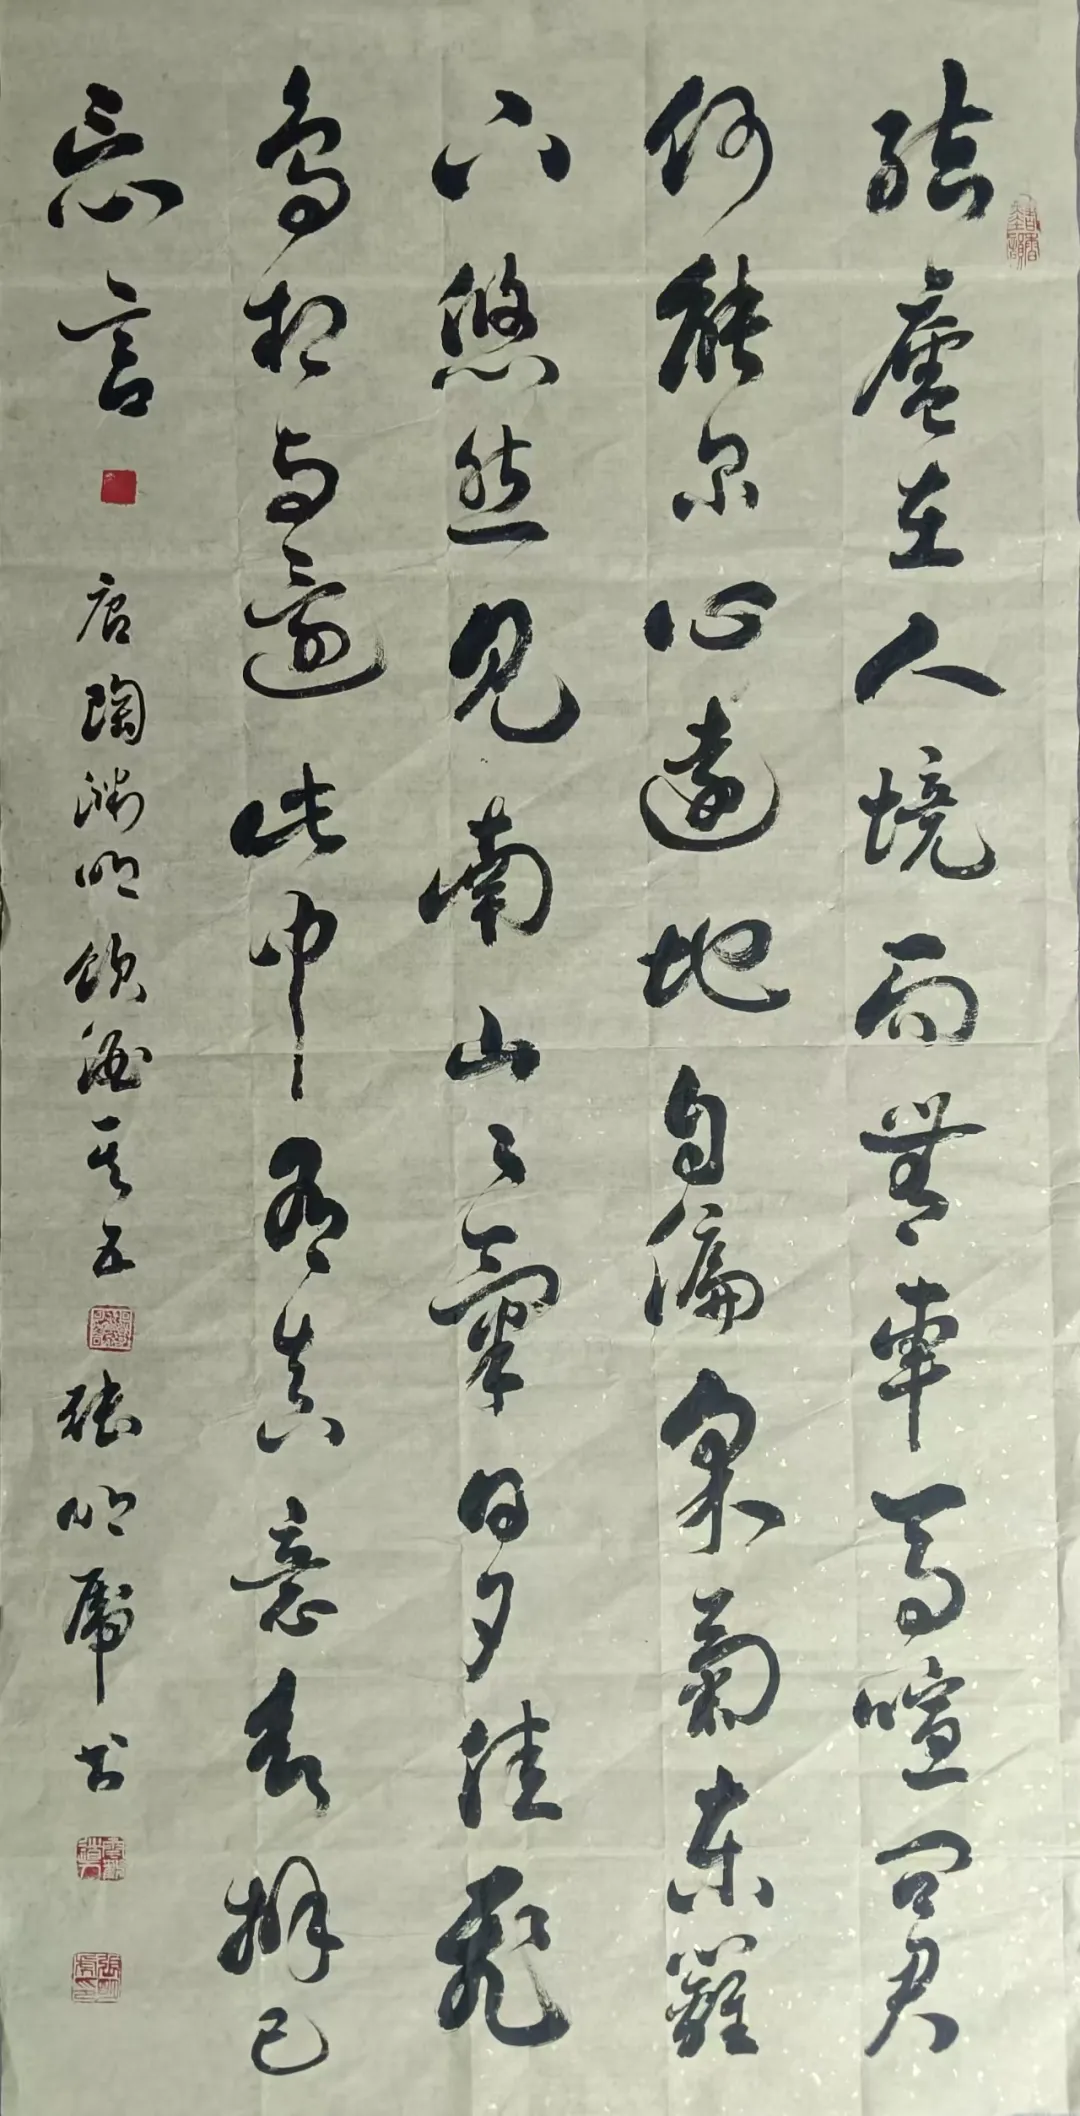 结廬在人境而無車馬喧問君
何能尔心遠地自偏采菊東籬
下悠然見南山山氣日夕佳飛
鳥相与還此中有真意欲辨已
忘言
唐陶渊明飲酒其五
張明虎书